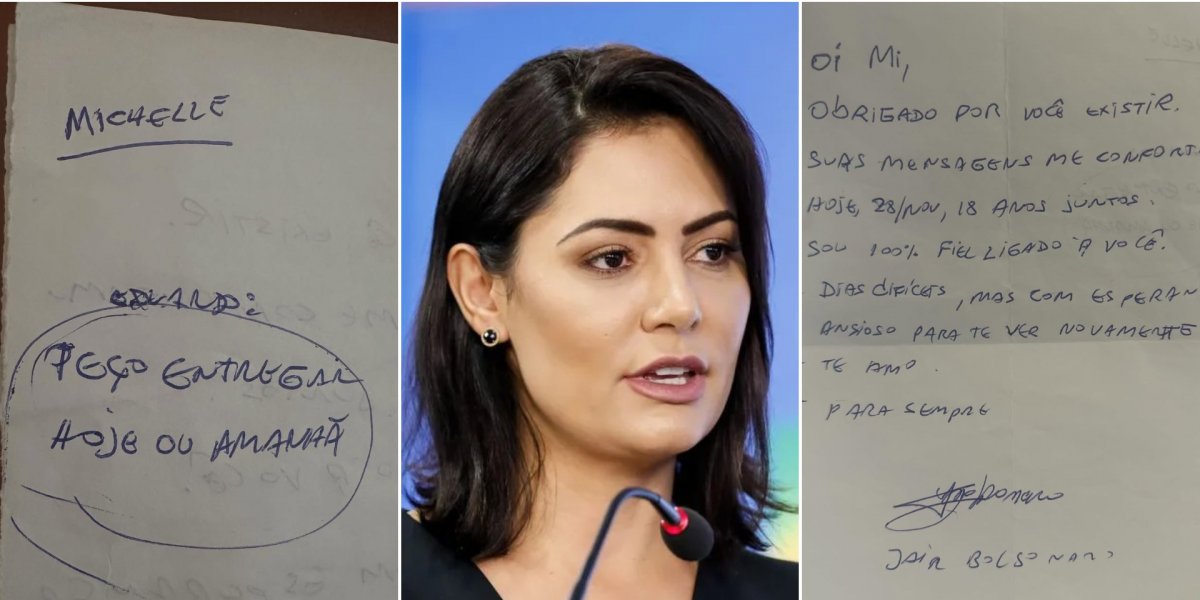 MICHELLE
PEÇO ENTREGAR
HOJE OU AMANHÃ
Oi Mi,
OBRIGADO POR VOCÊ EXISTIR.
SUAS MENSAGENS ME CONFORT
HOJE, 28/NOV, 18 ANOS JUNTOS.
SOU 100% FIEL LIGADO À VOCÊ.
DIAS DIFÍCEIS, MAS COM ESPERAN
ANSIOSO PARA TE VER NOVAMENTE
TE AMO.
PARA SEMPRE
JAIR BOLSONARO